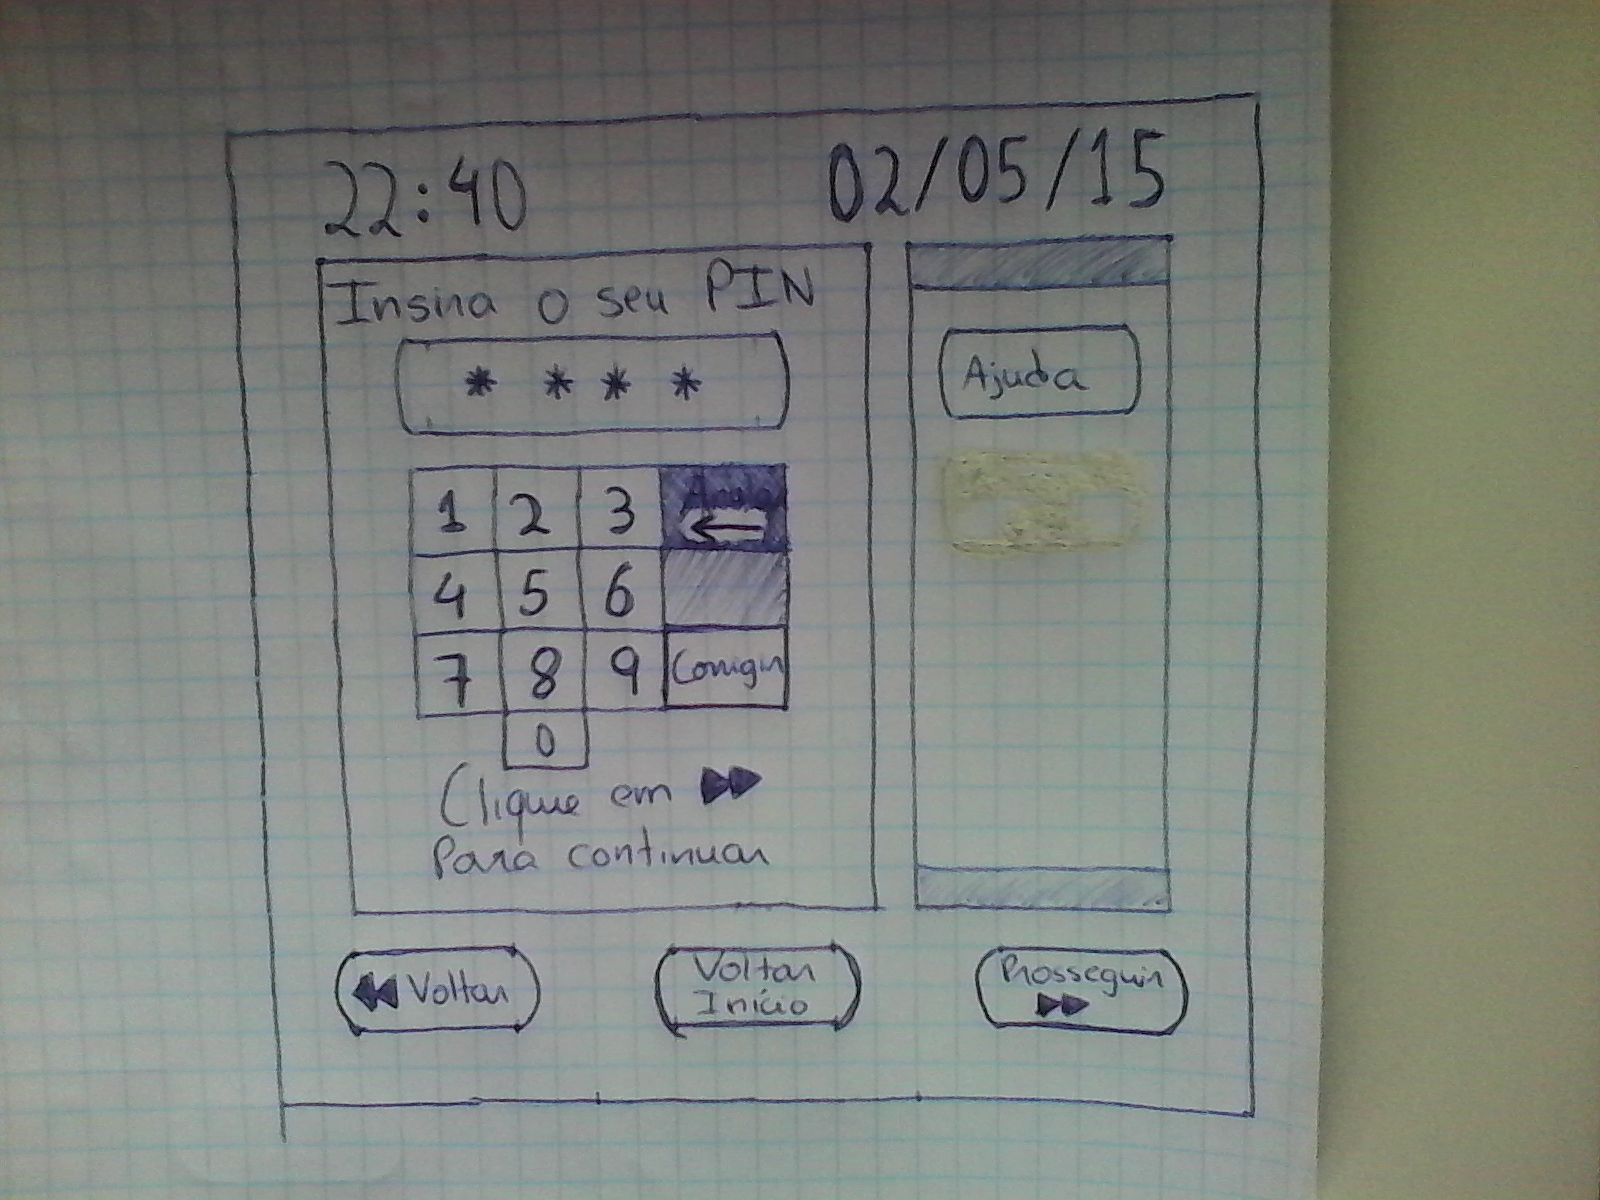 22:40 02/05/15
Insira o seu PIN
* * * *
Ajuda
1 2 3
4 5 6
7 8 9 Corrigir
0
Clique em
Para continuar
Voltar
Voltar
Início
Prosseguir